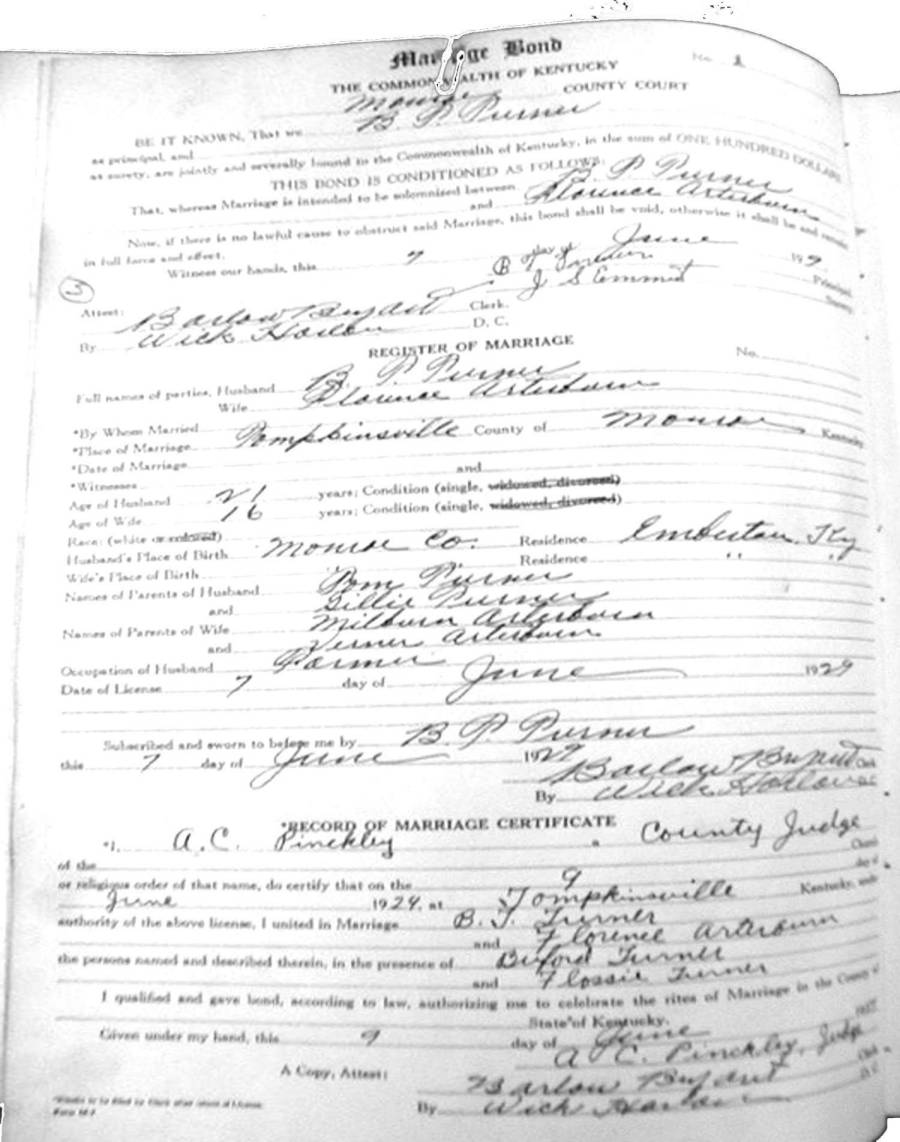 Marriage Bond
No. 1
THE COMMONWEALTH OF KENTUCKY
Monroe COUNTY COURT
BE IT KNOWN, That we B. P. Purner
as principal, and
as surety, are jointly and severally bound to the Commonwealth of Kentucky, in the sum of ONE HUNDRED DOLLARS
THIS BOND IS CONDITIONED AS FOLLOWS:
That, whereas Marriage is intended to be solemnized between B P Purner
and Florence Arterburn
Now, if there is no lawful cause to obstruct said Marriage, this bond shall be void, otherwise it shall be and remain
in full force and effect.
Witness our hands, this 7 day of June 19
B Purner Principal
J S Emmit Surety
3
Attest: Barlow Bryant Clerk.
By Wick Harlan D. C.
REGISTER OF MARRIAGE
No.
Full names of parties, Husband B. P. Purner
Wife Florence Arterburn
*By Whom Married
*Place of Marriage Tompkinsville County of Monroe Kentucky
*Date of Marriage
*Witnesses and
Age of Husband 21 years; Condition (single, widowed, divorced)
Age of Wife 16 years; Condition (single, widowed, divorced)
Race: (white or colored)
Husband's Place of Birth Monroe Co. Residence Emberton Ky
Wife's Place of Birth Residence " "
Names of Parents of Husband Tom Purner
and Gillie Purner
Names of Parents of Wife Milburn Arterburn
and Verner Arterburn
Occupation of Husband Farmer
Date of License 7 day of June 1929
Subscribed and sworn to before me by B. P. Purner
this 7 day of June 1929
Barlow Bryant Clk
By Wick Harlan DC
*RECORD OF MARRIAGE CERTIFICATE
*I, A. C. Pinckley a County Judge
of the Church
or religious order of that name, do certify that on the 9 day of
June 1929, at Tompkinsville Kentucky, under
authority of the above license, I united in Marriage B. T. Turner
and Florence Arterburn
the persons named and described therein, in the presence of Buford Turner
and Flossie Turner
I qualified and gave bond, according to law, authorizing me to celebrate the rites of Marriage in the County of
State of Kentucky.
Given under my hand, this 9 day of June
A C. Pinckley, Judge
A Copy, Attest: Barlow Bryant Clk
By Wick Harlan D C